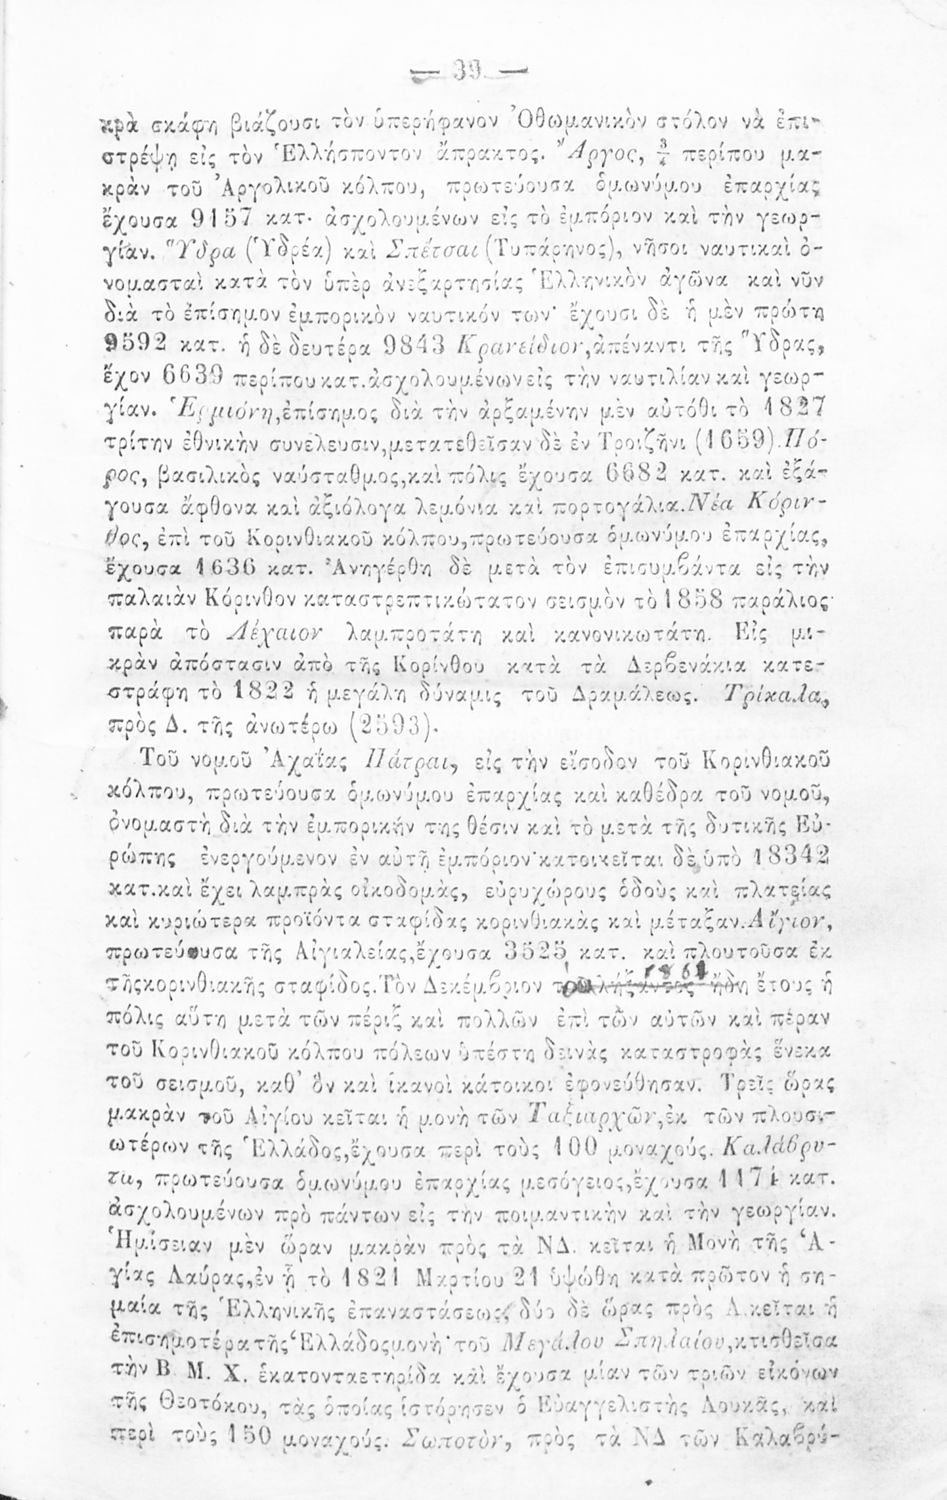 — 39 —
κρὰ σκάφη βιάζουσι τὸν ὑπερήφανον Ὀθωμανικὸν στόλον νὰ ἐπι-
στρέψῃ εἰς τὸν Ἑλλήσποντον ἄπρακτος. Ἄργος, ¾ περίπου μα-
κρὰν τοῦ Ἀργολικοῦ κόλπου, πρωτεύουσα ὁμωνύμου ἐπαρχίας
ἔχουσα 9157 κατ. ἀσχολουμένων εἰς τὸ ἐμπόριον καὶ τὴν γεωρ-
γίαν. Ὕδρα (Ὑδρέα) καὶ Σπέτσαι (Τυπάρηνος), νῆσοι ναυτικαὶ ὀ-
νομασταὶ κατὰ τὸν ὑπὲρ ἀνεξαρτησίας Ἑλληνικὸν ἀγῶνα καὶ νῦν
διὰ τὸ ἐπίσημον ἐμπορικὸν ναυτικόν των· ἔχουσι δὲ ἡ μὲν πρώτη
9592 κατ. ἡ δὲ δευτέρα 9843 Κρανείδιον, ἀπέναντι τῆς Ὕδρας,
ἔχον 6639 περίπου κατ. ἀσχολουμένων εἰς τὴν ναυτιλίαν καὶ γεωρ-
γίαν. Ἑρμιόνη, ἐπίσημος διὰ τὴν ἀρξαμένην μὲν αὐτόθι τὸ 1827
τρίτην ἐθνικὴν συνέλευσιν, μετατεθεῖσαν δὲ ἐν Τροιζῆνι (1659). Πό-
ρος, βασιλικὸς ναύσταθμος, καὶ πόλις ἔχουσα 6682 κατ. καὶ ἐξά-
γουσα ἄφθονα καὶ ἀξιόλογα λεμόνια καὶ πορτογάλια. Νέα Κόριν-
θος, ἐπὶ τοῦ Κορινθιακοῦ κόλπου, πρωτεύουσα ὁμωνύμου ἐπαρχίας,
ἔχουσα 1636 κατ. Ἀνηγέρθη δὲ μετὰ τὸν ἐπισυμβάντα εἰς τὴν
παλαιὰν Κόρινθον καταστρεπτικώτατον σεισμὸν τὸ 1858 παράλιος
παρὰ τὸ Λέχαιον λαμπροτάτη καὶ κανονικωτάτη. Εἰς μι-
κρὰν ἀπόστασιν ἀπὸ τῆς Κορίνθου κατὰ τὰ Δερβενάκια κατε-
στράφη τὸ 1822 ἡ μεγάλη δύναμις τοῦ Δραμάλεως. Τρίκαλα,
πρὸς Δ. τῆς ἀνωτέρω (2593).
Τοῦ νομοῦ Ἀχαΐας Πάτραι, εἰς τὴν εἴσοδον τοῦ Κορινθιακοῦ
κόλπου, πρωτεύουσα ὁμωνύμου ἐπαρχίας καὶ καθέδρα τοῦ νομοῦ,
ὀνομαστὴ διὰ τὴν ἐμπορικήν της θέσιν καὶ τὸ μετὰ τῆς δυτικῆς Εὐ-
ρώπης ἐνεργούμενον ἐν αὐτῇ ἐμπόριον· κατοικεῖται δὲ ὑπὸ 18342
κατ. καὶ ἔχει λαμπρὰς οἰκοδομάς, εὐρυχώρους ὁδοὺς καὶ πλατείας
καὶ κυριώτερα προϊόντα σταφίδας κορινθιακὰς καὶ μέταξαν. Αἴγιον,
πρωτεύουσα τῆς Αἰγιαλείας, ἔχουσα 3525 κατ. καὶ πλουτοῦσα ἐκ
τῆς κορινθιακῆς σταφίδος. Τὸν Δεκέμβριον τοῦ λήξαντος 1861 ἤδη ἔτους ἡ
πόλις αὕτη μετὰ τῶν πέριξ καὶ πολλῶν ἐπὶ τῶν αὐτῶν καὶ πέραν
τοῦ Κορινθιακοῦ κόλπου πόλεων ὑπέστη δεινὰς καταστροφὰς ἕνεκα
τοῦ σεισμοῦ, καθ' ὃν καὶ ἱκανοὶ κάτοικοι ἐφονεύθησαν. Τρεῖς ὥρας
μακρὰν τοῦ Αἰγίου κεῖται ἡ μονὴ τῶν Ταξιαρχῶν, ἐκ τῶν πλουσι-
ωτέρων τῆς Ἑλλάδος, ἔχουσα περὶ τοὺς 100 μοναχούς. Καλάβρυ-
τα, πρωτεύουσα ὁμωνύμου ἐπαρχίας μεσόγειος, ἔχουσα 1171 κατ.
ἀσχολουμένων πρὸ πάντων εἰς τὴν ποιμαντικὴν καὶ τὴν γεωργίαν.
Ἡμίσειαν μὲν ὥραν μακρὰν πρὸς τὰ ΝΔ. κεῖται ἡ Μονὴ τῆς Ἁ-
γίας Λαύρας, ἐν ᾗ τὸ 1821 Μαρτίου 21 ὑψώθη κατὰ πρῶτον ἡ ση-
μαία τῆς Ἑλληνικῆς ἐπαναστάσεως, δύο δὲ ὥρας πρὸς Α κεῖται ἡ
ἐπισημοτέρα τῆς Ἑλλάδος μονὴ τοῦ Μεγάλου Σπηλαίου, κτισθεῖσα
τὴν Β Μ. Χ. ἑκατονταετηρίδα καὶ ἔχουσα μίαν τῶν τριῶν εἰκόνων
τῆς Θεοτόκου, τὰς ὁποίας ἱστόρησεν ὁ Εὐαγγελιστὴς Λουκᾶς, καὶ
περὶ τοὺς 150 μοναχούς. Σωποτὸν, πρὸς τὰ ΝΔ τῶν Καλαβρύ-